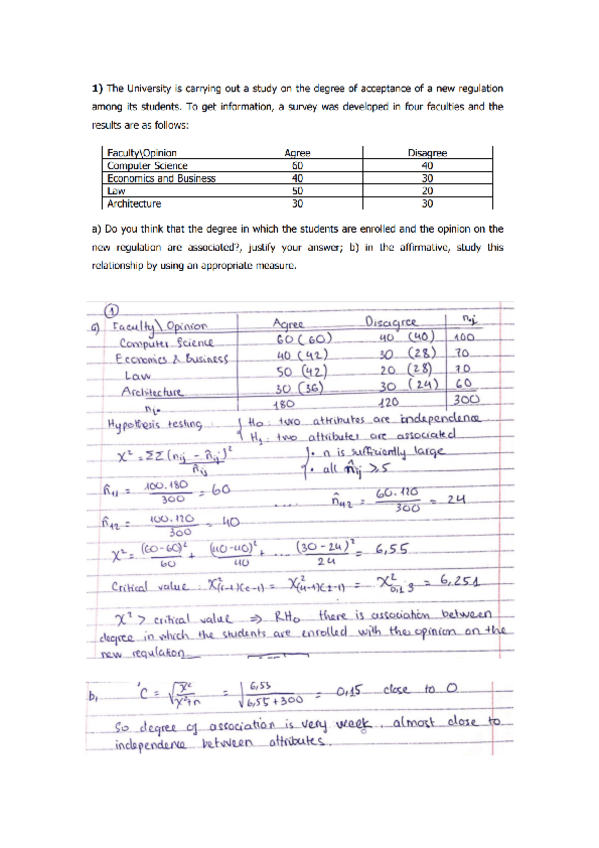 1) The University is carrying out a study on the degree of acceptance of a new regulation
among its students. To get information, a survey was developed in four faculties and the
results are as follows:
Faculty\Opinion Agree Disagree
Computer Science 60 40
Economics and Business 40 30
Law 50 20
Architecture 30 30
a) Do you think that the degree in which the students are enrolled and the opinion on the
new regulation are associated?, justify your answer; b) in the affirmative, study this
relationship by using an appropriate measure.
1
a) Faculty \ Opinion Agree Disagree n.j
Computer Science 60 (60) 40 (40) 100
Economics & Business 40 (42) 30 (28) 70
Law 50 (42) 20 (28) 70
Architecture 30 (36) 30 (24) 60
ni. 180 120 300
Hypothesis testing : { H0 : two attributes are independence
H1 : two attributes are associated
X² = ΣΣ (nij - n̂ij)² / n̂ij { • n is sufficiently large
• all n̂ij ≥ 5
n̂11 = 100.180 / 300 = 60 .... n̂42 = 60.120 / 300 = 24
n̂12 = 100.120 / 300 = 40
X² = (60-60)² / 60 + (40-40)² / 40 + ... (30-24)² / 24 = 6,55
Critical value : X²(r-1)(c-1) = X²(4-1)(2-1) = X²0,1 3 = 6,251
X² > critical value ⇒ RH0 there is association between
degree in which the students are enrolled with the opinion on the
new regulation
b, C = √X² / X²+n = √6,55 / 6,55+300 = 0,15 close to 0
So degree of association is very week, almost close to
independence between attributes.